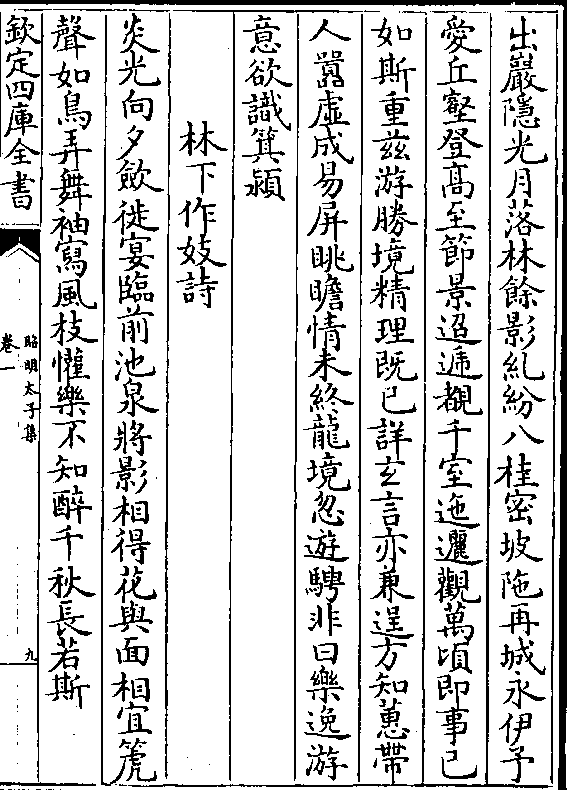 出巖隱光月落林餘影糺紛八桂密坡陁再城永伊予
愛丘壑登髙至節景迢遞觀千室迤邐觀萬頃即事已
如斯重兹游勝境精理既已詳玄言亦兼逞方知蕙帶
人囂虚成易屏眺瞻情未終龍境忽遊騁非曰樂逸游
意欲識箕潁
林下作妓詩
炎光向夕歛徙宴臨前池泉將影相得花與面相宜篪
聲如鳥弄舞袖寫風枝懽樂不知醉千秋長若斯
欽定四庫全書
昭明太子集
卷一
九